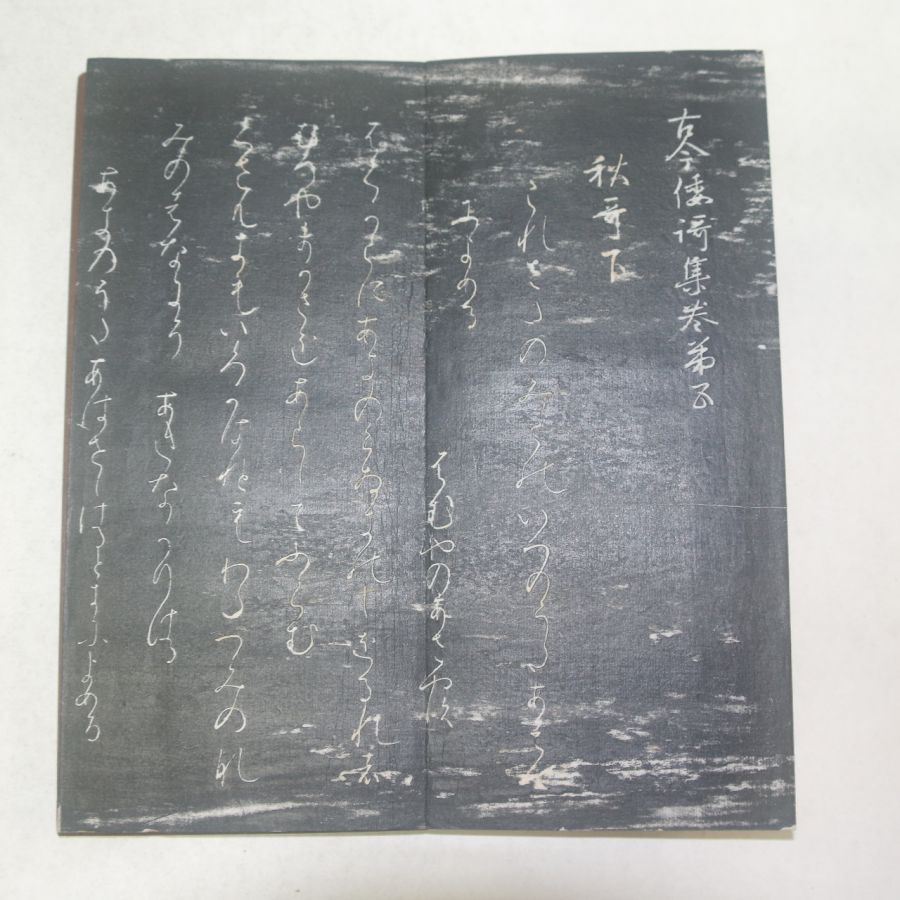 古今倭謌集巻第五
秋哥下
これさたのみこのいへのうたあはせ
によめる　ふむやのやすひて
ふくからにあきのくさきのしをるれは
むへやまかせをあらしといふらむ
くさもきもいろかはれともわたつみのな
みのはなにそ　あきなかりける
あきのうたあはせしけるときによめる